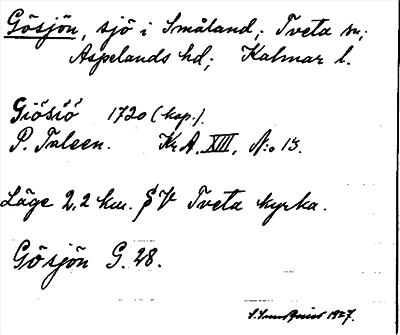 Gösjön, sjö i Småland; Tveta sn;
Aspelands hd; Kalmar l.
Giösiö 1720 (kop.).
P. Duleen. Kr A. XIII, N:o 13.
Läge 2,2 km. SV Tveta kyrka.
Gösjön G. 28.
1927.